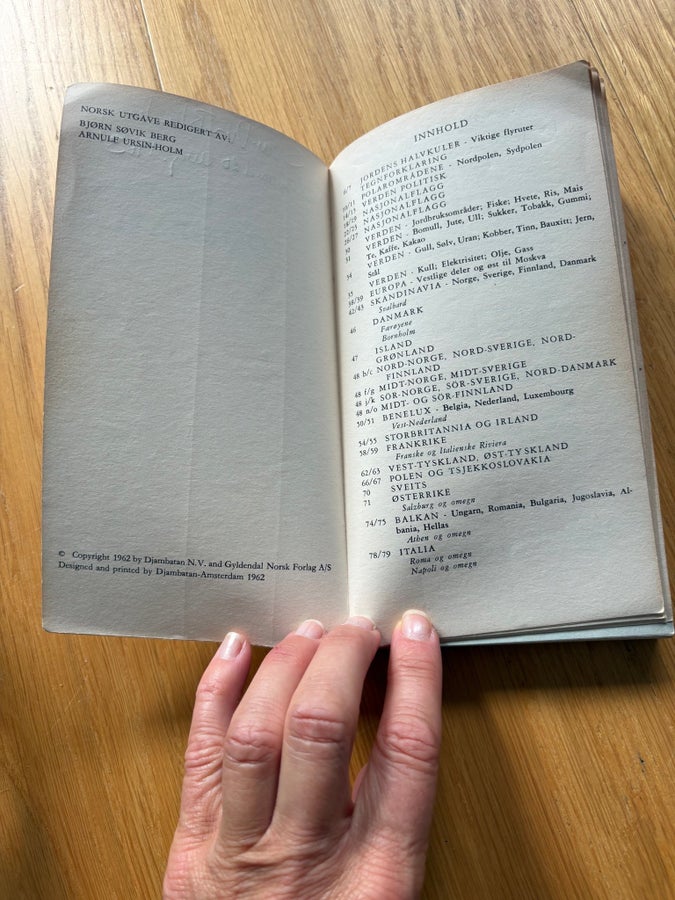 NORSK UTGAVE REDIGERT AV:
BJØRN SØVIK BERG
ARNULF URSIN-HOLM
© Copyright 1962 by Djambatan N.V. and Gyldendal Norsk Forlag A/S
Designed and printed by Djambatan-Amsterdam 1962
INNHOLD
JORDENS HALVKULER - Viktige flyruter
6/7 TEGNFORKLARING
POLAROMRÅDENE - Nordpolen, Sydpolen
10/11 VERDEN POLITISK
14/15 NASJONALFLAGG
18/19 NASJONALFLAGG
22/23 NASJONALFLAGG
26/27 VERDEN - Jordbruksområder; Fiske; Hvete, Ris, Mais
50 VERDEN - Bomull, Jute, Ull; Sukker, Tobakk, Gummi;
51 Te, Kaffe, Kakao
VERDEN - Gull, Sølv, Uran; Kobber, Tinn, Bauxitt; Jern,
54 Stål
VERDEN - Kull; Elektrisitet; Olje, Gass
55 EUROPA - Vestlige deler og øst til Moskva
58/59 SKANDINAVIA - Norge, Sverige, Finnland, Danmark
42/43 Svalbard
DANMARK
46 Færøyene
Bornholm
ISLAND
47 GRØNLAND
48 b/c NORD-NORGE, NORD-SVERIGE, NORD-
FINNLAND
48 f/g MIDT-NORGE, MIDT-SVERIGE
48 j/k SÖR-NORGE, SÖR-SVERIGE, NORD-DANMARK
48 n/o MIDT- OG SÖR-FINNLAND
50/51 BENELUX - Belgia, Nederland, Luxembourg
Vest-Nederland
54/55 STORBRITANNIA OG IRLAND
58/59 FRANKRIKE
Franske og Italienske Riviera
62/63 VEST-TYSKLAND, ØST-TYSKLAND
66/67 POLEN OG TSJEKKOSLOVAKIA
70 SVEITS
71 ØSTERRIKE
Salzburg og omegn
74/75 BALKAN - Ungarn, Romania, Bulgaria, Jugoslavia, Al-
bania, Hellas
Athen og omegn
78/79 ITALIA
Roma og omegn
Napoli og omegn